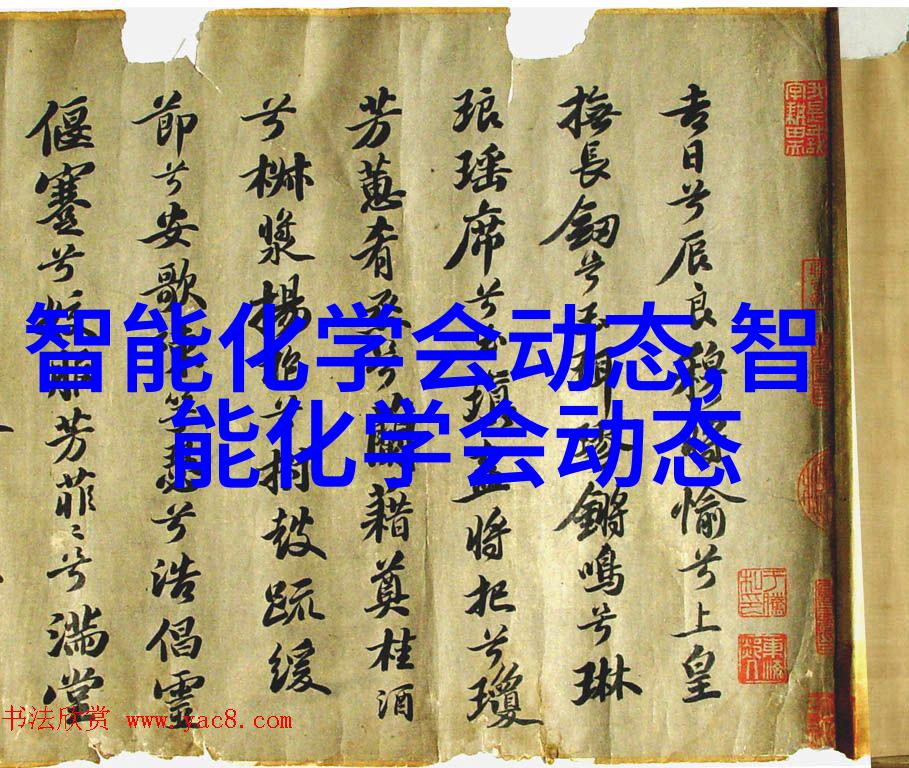 吉日兮辰良穆將愉兮上皇
撫長釼兮玉珥璆鏘鳴兮琳
琅瑶席兮玉瑱盍將把兮瓊
芳蕙肴蒸兮蘭藉奠桂酒
兮椒漿揚枹兮拊鼓疏緩
節兮安歌陳竽瑟兮浩倡靈
偃蹇兮姣服芳菲〻兮滿堂
智能化学会动态,智
能化学会动态
书法欣赏 www.yac8.com